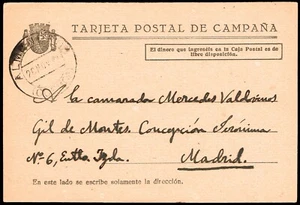 TARJETA POSTAL DE CAMPAÑA
El dinero que ingreséis en la Caja Postal es de
libre disposición.
A la camarada Mercedes Valdovinos
Gil de Montes. Concepción Jerónima
Nº 6, Entlo. Izda.
Madrid.
En este lado se escribe solamente la dirección.